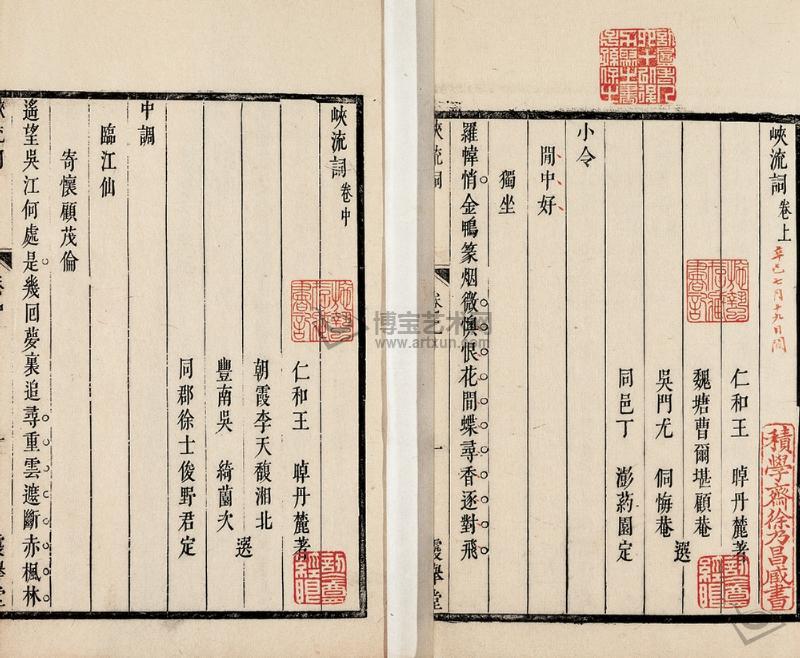 峽流詞卷上
辛巳七月十九日閱
仁和王 晫丹麓著
魏塘曹爾堪顧菴
吳門尤 侗悔菴 選
同邑丁 澎葯園定
小令
閒中好
獨坐
羅幃悄金鴨篆烟微懊恨花間蝶尋香逐對飛
積學齋徐乃昌藏書
峽流詞卷中
仁和王 晫丹麓著
朝霞李天馥湘北
豐南吳 綺薗次 選
同郡徐士俊野君定
中調
臨江仙
寄懷顧茂倫
遙望吳江何處是幾回夢裏追尋重雲遮斷赤楓林
霞舉堂
博宝艺术网
www.artxun.com